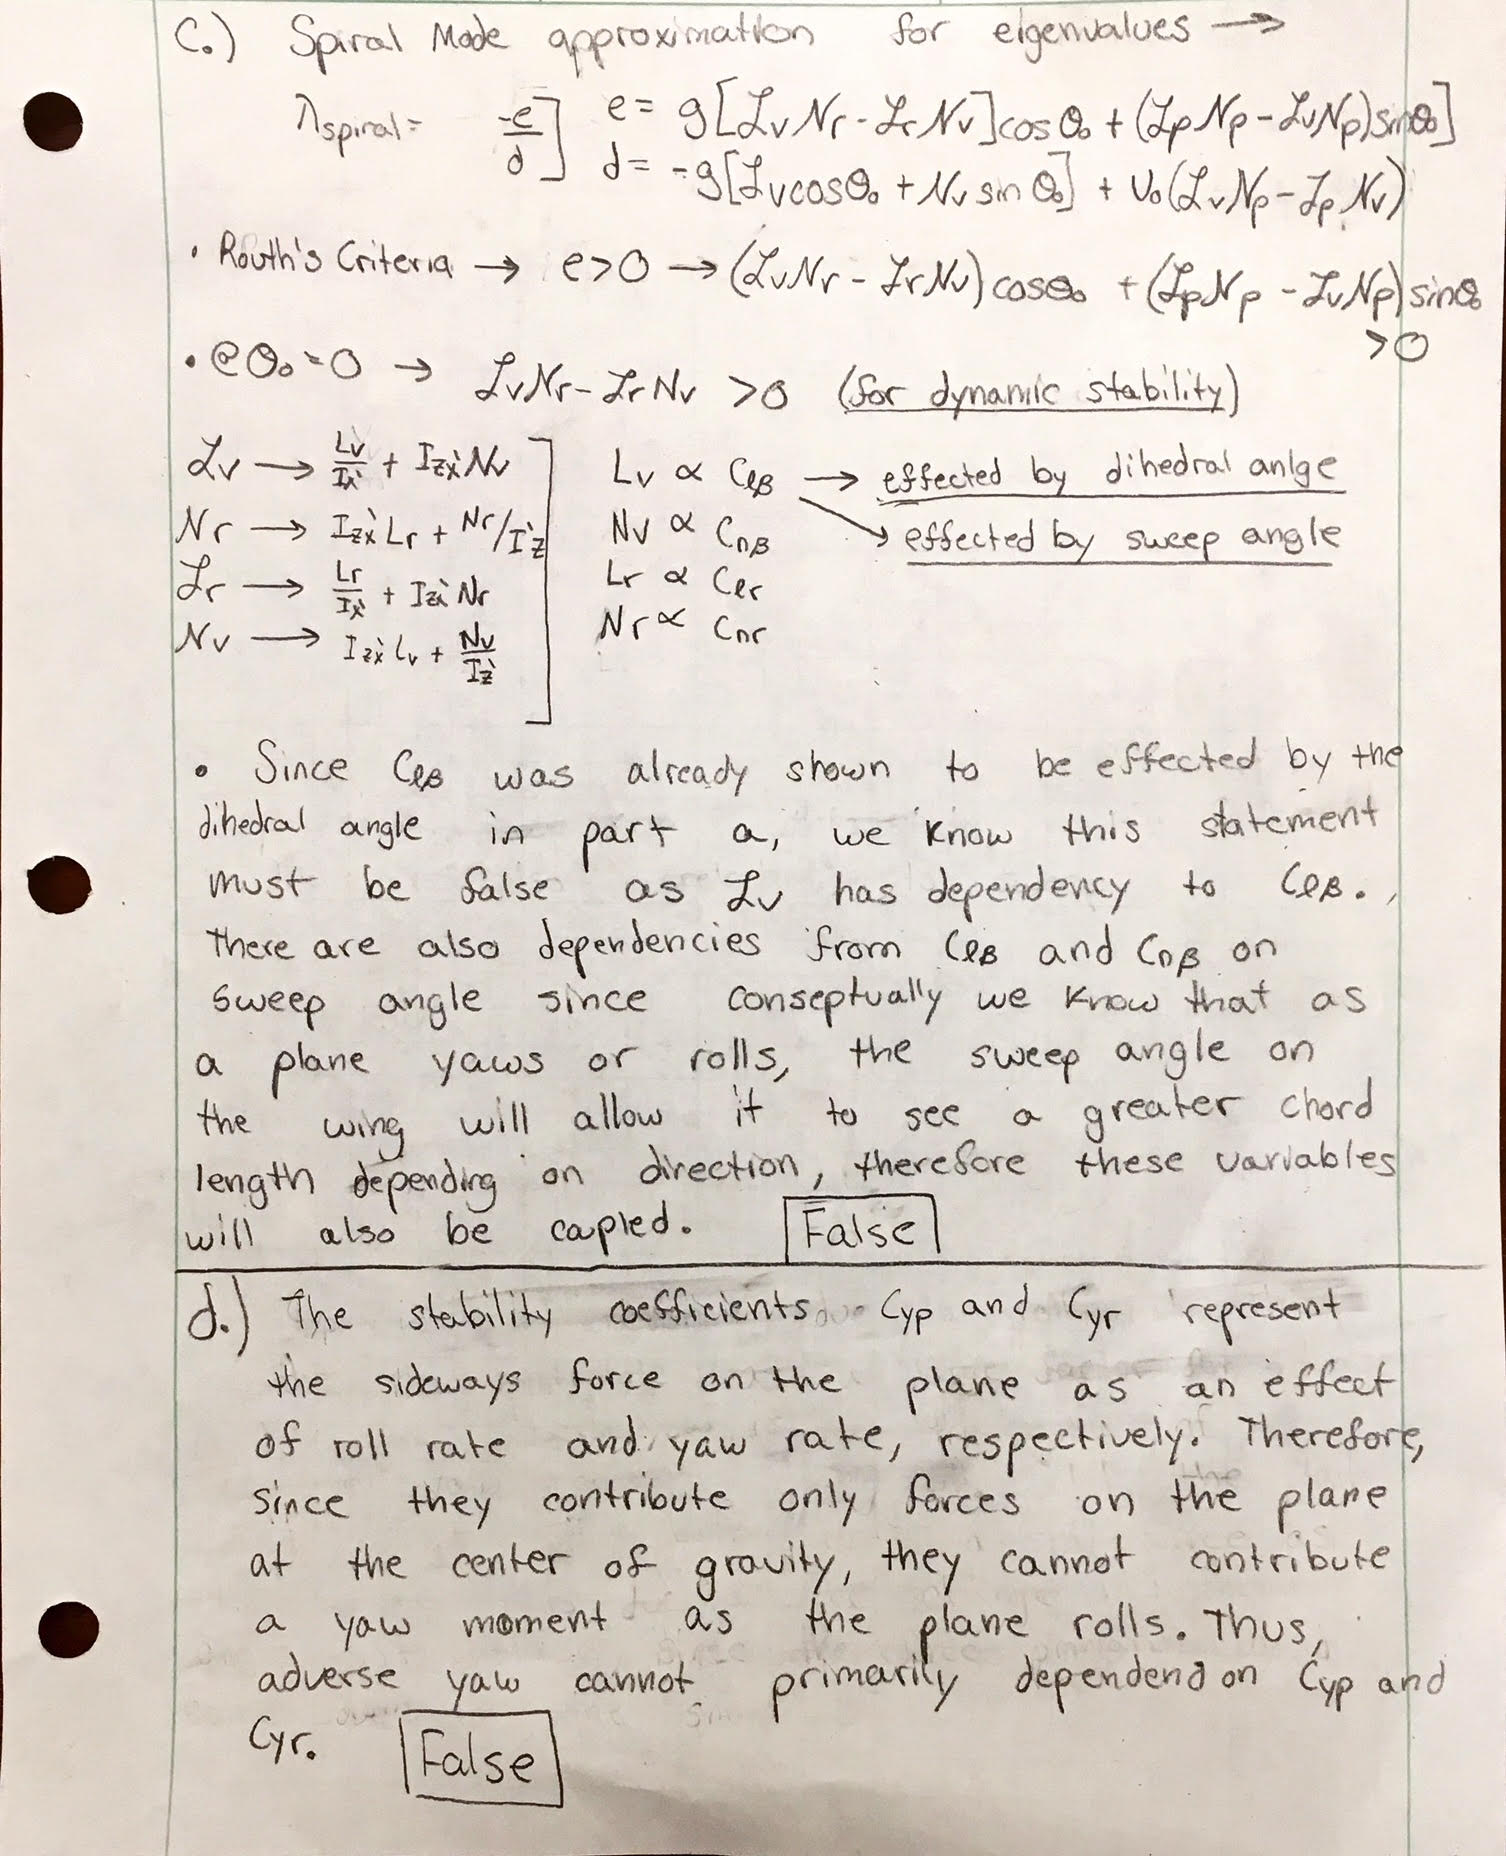 C.) Spiral Mode approximation for eigenvalues →
λspiral = -e/d ] e = g[ℒvNr - ℒrNv]cosθ₀ + (ℒpNp - ℒvNp)sinθ₀]
d = -g[ℒvcosθ₀ + Nv sinθ₀] + U₀(ℒvNp - ℒpNv)
· Routh's Criteria → e>0 → (ℒvNr - ℒrNv)cosθ₀ + (ℒpNp - ℒvNp)sinθ₀
>0
· @θ₀=0 → ℒvNr - ℒrNv >0 (for dynamic stability)
ℒv → Lv/Ix' + Izx'Nv ] Lv ∝ Clβ → effected by dihedral anlge
Nr → Izx'Lr + Nr/Iz' Nv ∝ Cnβ → effected by sweep angle
ℒr → Lr/Ix' + Izx'Nr Lr ∝ Clr
Nv → Izx'Lv + Nv/Iz' Nr ∝ Cnr
· Since Clβ was already shown to be effected by the
dihedral angle in part a, we know this statement
must be false as ℒv has dependency to Clβ.
There are also dependencies from Clβ and Cnβ on
sweep angle since conseptually we know that as
a plane yaws or rolls, the sweep angle on
the wing will allow it to see a greater chord
length depending on direction, therefore these variables
will also be coupled. False
d.) The stability coefficients Cyp and Cyr represent
the sideways force on the plane as an effect
of roll rate and yaw rate, respectively. Therefore,
since they contribute only forces on the plane
at the center of gravity, they cannot contribute
a yaw moment as the plane rolls. Thus,
adverse yaw cannot primarily dependend on Cyp and
Cyr. False